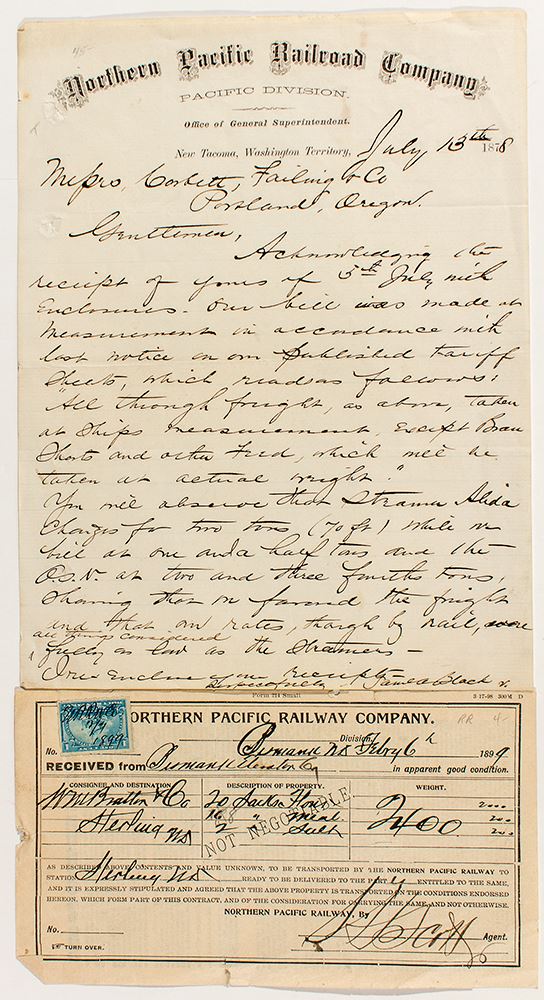 45-
Northern Pacific Railroad Company,
PACIFIC DIVISION.
Office of General Superintendent.
New Tacoma, Washington Territory, July 13th 1878
Messrs Corbett, Failing & Co
Portland, Oregon.
Gentlemen,
Acknowledging the
receipt of yours of 5th July with
Enclosures. Our bill was made at
Measurement in accordance with
last notice on our published tariff
Sheets, which reads as follows:
"All through freight, as above, taken
at Ships measurement, Except Bran
Shorts and other Feed, which will be
taken at actual weight."
You will observe that Steamer Alida
Charges for two tons (70 ft) while we
bill at one and a half tons and the
O.S.N. at two and three fourths tons,
Showing that we favored the freight
and that our rates, though by rail, were
all things considered
fully as low as the Steamers -
your receipt
Respectfully
Form 711 Small
3-17-98 500M D
RR 4-
NORTHERN PACIFIC RAILWAY COMPANY.
Division,
Bismarck ND Febry 6th 1899
No.
RECEIVED from Bismarck Elevator Co in apparent good condition.
CONSIGNEE AND DESTINATION. DESCRIPTION OF PROPERTY. WEIGHT.
W M Bratton & Co 20 Sacks Flour 2000
Sterling ND 16 " Meal 2400 200
2 " Salt 200
NOT NEGOTIABLE.
AS DESCRIBED ABOVE, CONTENTS AND VALUE UNKNOWN, TO BE TRANSPORTED BY THE NORTHERN PACIFIC RAILWAY TO
STATION, Sterling ND READY TO BE DELIVERED TO THE PARTY ENTITLED TO THE SAME,
AND IT IS EXPRESSLY STIPULATED AND AGREED THAT THE ABOVE PROPERTY IS TRANSPORTED ON THE CONDITIONS ENDORSED
HEREON, WHICH FORM PART OF THIS CONTRACT, AND OF THE CONSIDERATION FOR CARRYING THE SAME, AND NOT OTHERWISE.
NORTHERN PACIFIC RAILWAY, By
No. Scott Agent.
TURN OVER.